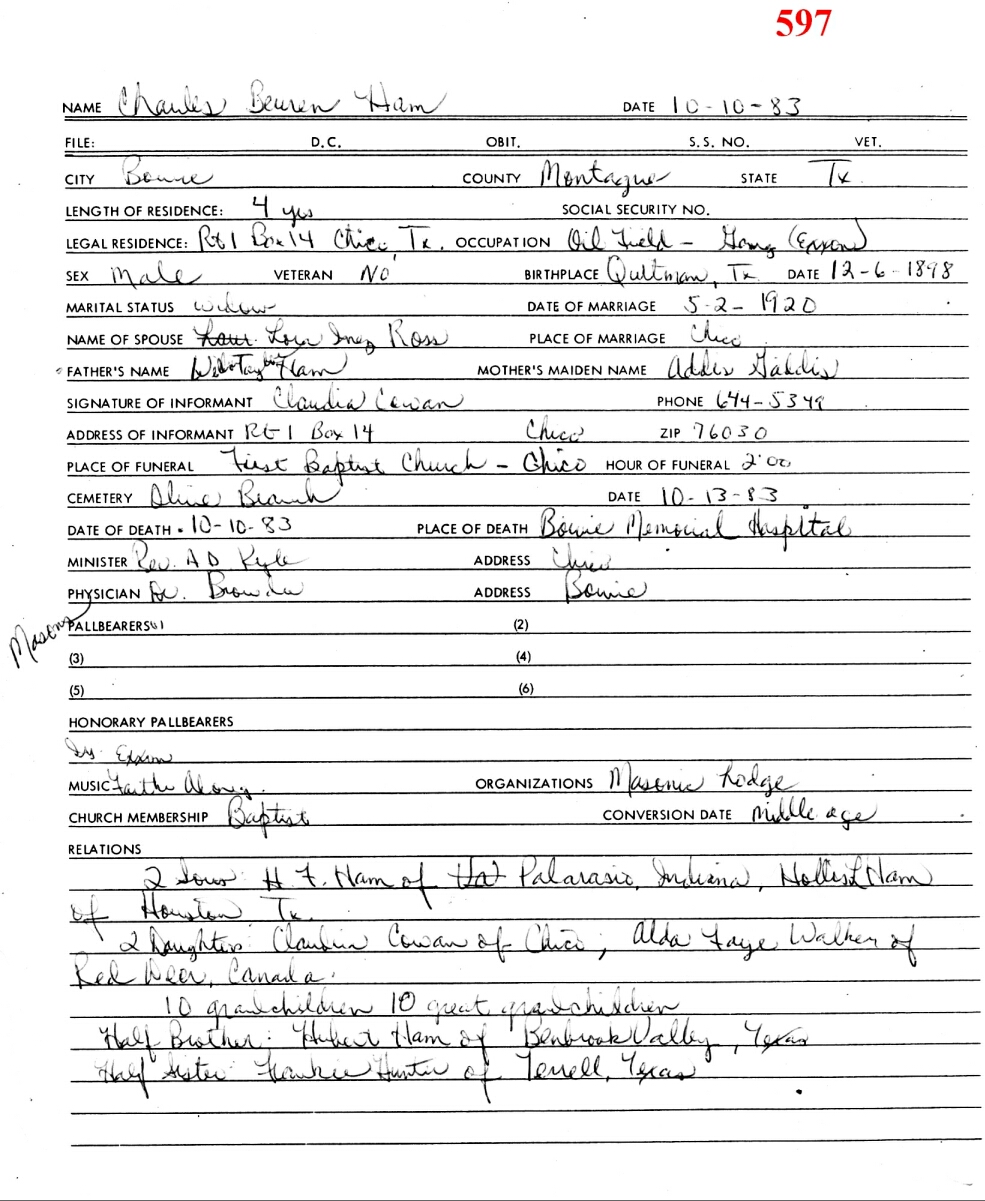 597
NAME Charles Beuren Ham DATE 10-10-83
FILE: D.C. OBIT. S.S. NO. VET.
CITY Bowie COUNTY Montague STATE Tx
LENGTH OF RESIDENCE: 4 yrs SOCIAL SECURITY NO.
LEGAL RESIDENCE: Rt 1 Box 14 Chico, Tx. OCCUPATION Oil Field - Gang (Exxon)
SEX Male VETERAN No BIRTHPLACE Quitman, Tx DATE 12-6-1898
MARITAL STATUS widow DATE OF MARRIAGE 5-2-1920
NAME OF SPOUSE Inez Ross PLACE OF MARRIAGE Chico
FATHER'S NAME Ham MOTHER'S MAIDEN NAME Addie
SIGNATURE OF INFORMANT Claudia Cowan PHONE 644-5349
ADDRESS OF INFORMANT Rt 1 Box 14 Chico ZIP 76030
PLACE OF FUNERAL First Baptist Church - Chico HOUR OF FUNERAL 2:00
CEMETERY Olive Branch DATE 10-13-83
DATE OF DEATH 10-10-83 PLACE OF DEATH Bowie Memorial Hospital
MINISTER Rev. A D Kyle ADDRESS Chico
PHYSICIAN Dr. Browder ADDRESS Bowie
Masons
PALLBEARERS(1) (2)
(3) (4)
(5) (6)
HONORARY PALLBEARERS
Exxon
MUSIC Faithe ORGANIZATIONS Masonic Lodge
CHURCH MEMBERSHIP Baptist CONVERSION DATE Middle age
RELATIONS
2 Sons: H. F. Ham of Indiana, Hollis L Ham
of Houston Tx.
2 Daughters: Claudia Cowan of Chico; Alda Faye Walker of
Red Deer, Canada.
10 grandchildren 10 great grandchildren
Half Brother: Hubert Ham of Benbrook Valley, Texas
Half Sister: Frankie Hunter of Terrell, Texas